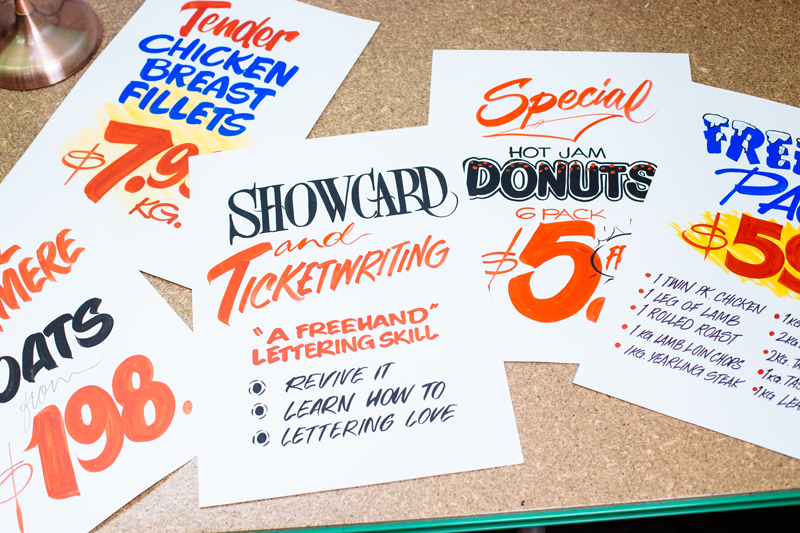 Tender
CHICKEN
BREAST
FILLETS
$7.9
KG.
SHOWCARD
and
TICKETWRITING
"A FREEHAND"
LETTERING SKILL
REVIVE IT
LEARN HOW TO
LETTERING LOVE
Special
HOT JAM
DONUTS
6 PACK
$5.
$59
1 TWIN PK. CHICKEN
1 LEG OF LAMB
1 ROLLED ROAST
1KG. LAMB LOIN CHOPS
1KG. YEARLING STEAK
from
$198.